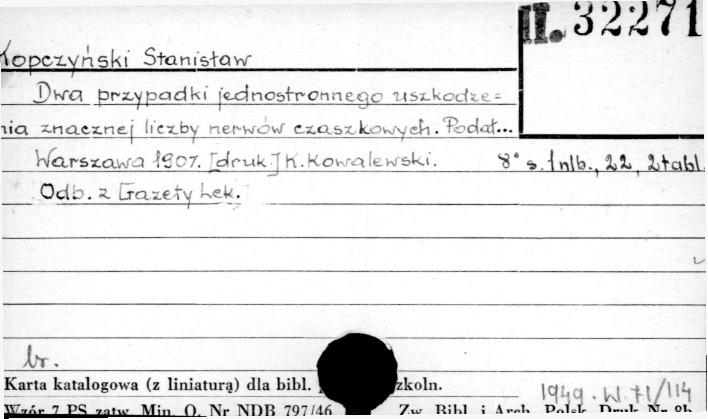 II. 32271
Kopczyński Stanisław
Dwa przypadki jednostronnego uszkodze=
nia znacznej liczby nerwów czaszkowych. Podał...
Warszawa 1907. [druk] K. Kowalewski. 8° s. 1 nlb., 22, 2 tabl.
Odb. z Gazety Lek.
br.
Karta katalogowa (z liniaturą) dla bibl. zkoln.
1949. W. 71/114
Wzór 7 PS zatw. Min. O. Nr NDB 797/46 Zw. Bibl. i Arch. Polsk. Druk Nr 8b